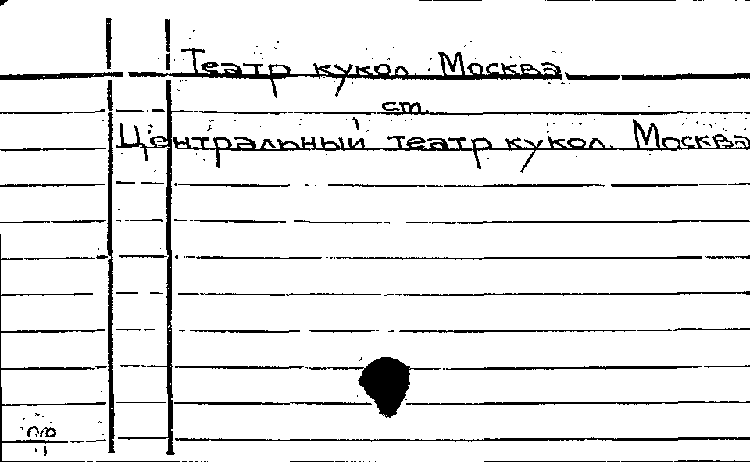 Театр кукол. Москва
ст.
Центральный театр кукол. Москва